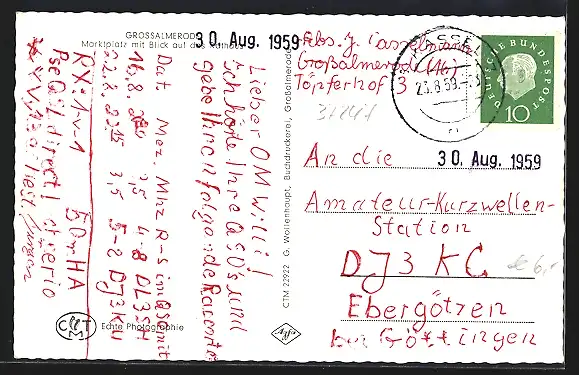 GROSSALMERODE
Marktplatz mit Blick auf das Rathaus
30. Aug. 1959
Lieber OM Willi!
Ich hörte Ihre QSO's und
gebe Ihnen folgende
Dat Mez Mhz R-S in QSO mit
16.8. 3,5 4-8 DL3SH
22.8. 3,5 5-8 DJ3KU
RX: 1-V-1 50mHA
Pse QSL direct! cheerio
Jürgen
CTM
Echte Photographie
CTM 22922 G. Wollenhaupt, Buchdruckerei, Großalmerode
Agfa
Abs. J. Casselmann
Großalmerode (16)
Töpferhof 3
DEUTSCHE BUNDESPOST
10
30. Aug. 1959
An die
Amateur-Kurzwellen-
Station
DJ3KC
Ebergötzen
bei Göttingen